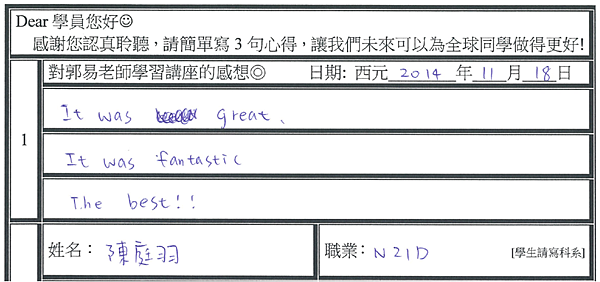 Dear 學員您好☺
感謝您認真聆聽，請簡單寫 3 句心得，讓我們未來可以為全球同學做得更好!
對郭易老師學習講座的感想◎ 日期: 西元 2014 年 11 月 18 日
1
It was great.
It was fantastic
The best!!
姓名： 陳庭羽 職業： N21D [學生請寫科系]